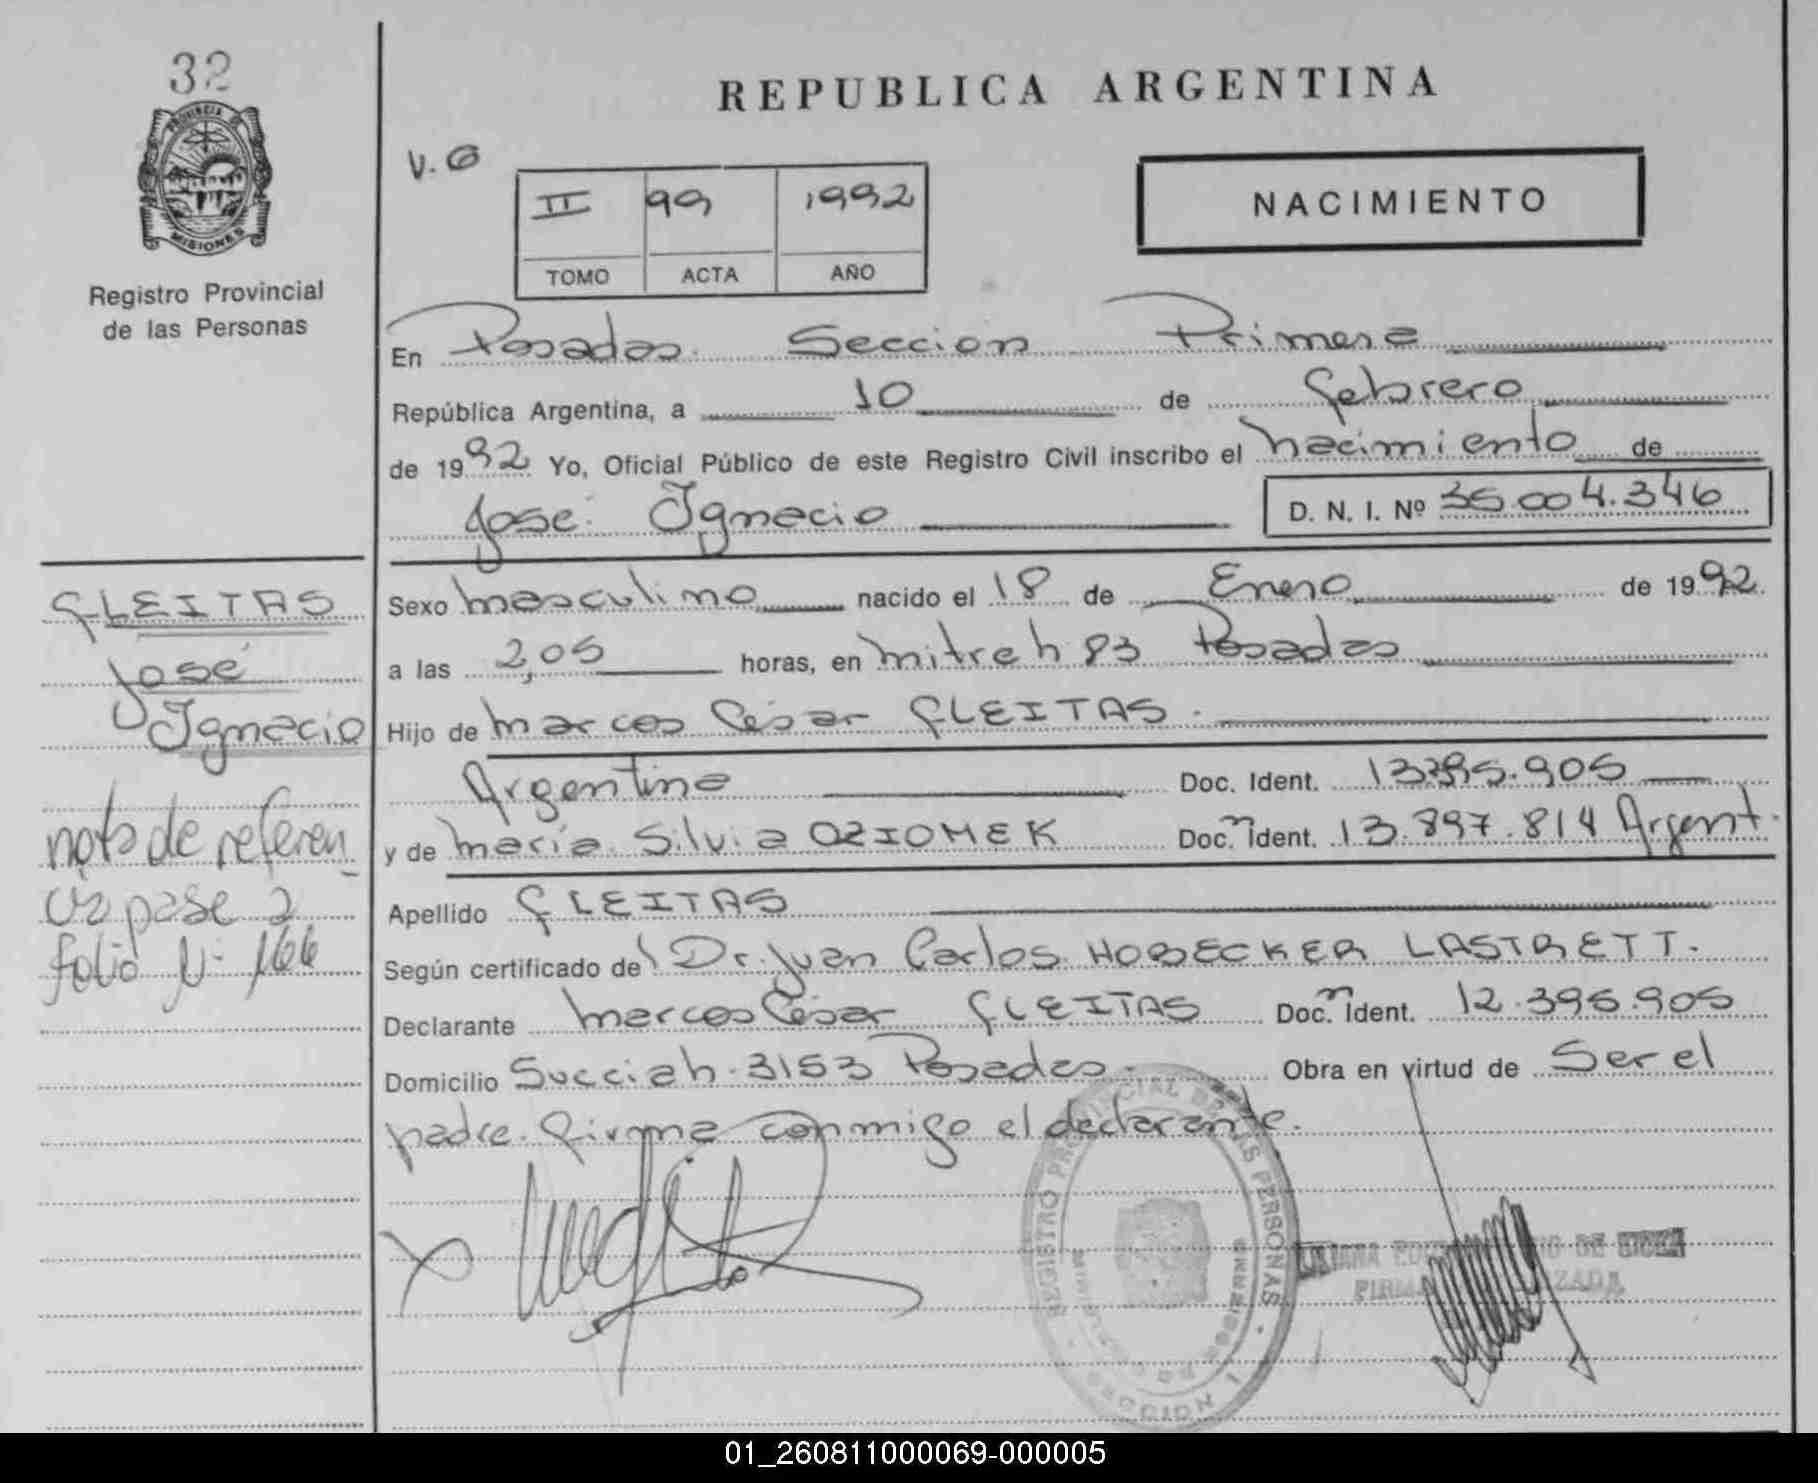 32
PROVINCIA DE
MISIONES
Registro Provincial
de las Personas
REPUBLICA ARGENTINA
V. G
II 99 1992
TOMO ACTA AÑO
NACIMIENTO
En Posadas Seccion Primera
República Argentina, a 10 de febrero
de 1992 Yo, Oficial Público de este Registro Civil inscribo el nacimiento de
José Ignacio D. N. I. Nº 35.004.346
Sexo masculino nacido el 18 de Enero de 1992
a las 2,05 horas, en mitre h 83 Posadas
Hijo de marcos César FLEITAS
Argentino Doc. Ident. 13.395.905
y de maría Silvia OZIOMEK Doc. Ident. 13.897.814 Argent.
Apellido FLEITAS
Según certificado del Dr. Juan Carlos HOBECKER LASTRETT.
Declarante marcos César FLEITAS Doc. Ident. 12.395.905
Domicilio 3153 Posadas. Obra en virtud de Ser el
padre. firma conmigo el declarante.
FLEITAS
José
Ignacio
nota de referen
cia pase a
folio Nº 166
REGISTRO PROVINCIAL DE LAS PERSONAS
SECCION 1
DE GOBIERNO
01_260811000069-000005